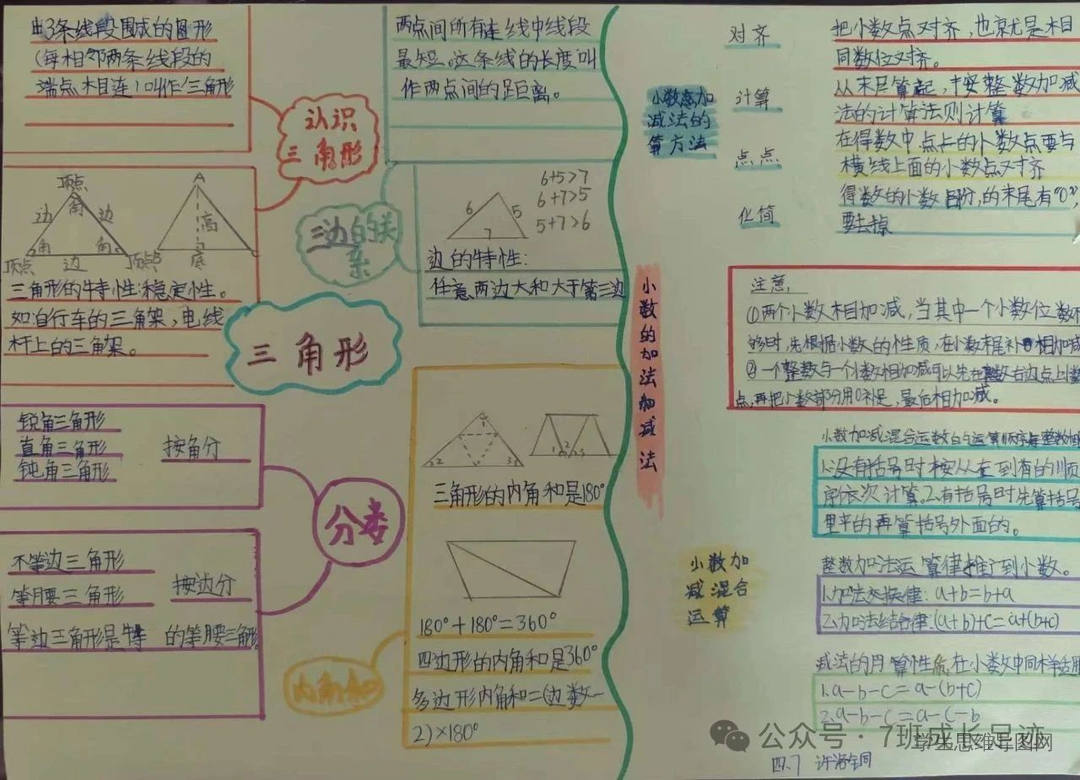 由3条线段围成的图形
(每相邻两条线段的
端点相连)叫作三角形
认识
三角形
顶点
角
边
边
角
角
顶点
边
顶点
A
高
底
三角形的特性:稳定性。
如自行车的三角架,电线
杆上的三角架。
三角形
锐角三角形
直角三角形
钝角三角形
按角分
分类
不等边三角形
等腰三角形
按边分
等边三角形是特 的等腰三角形
两点间所有连线中线段
最短。这条线的长度叫
作两点间的距离。
三边的关
系
6
5
7
6+5>7
6+7>5
5+7>6
边的特性:
任意两边大和大于第三边
三角形的内角和是180°
180°+180°=360°
四边形的内角和是360°
多边形内角和=(边数-
2)×180°
内角和
小数的加法和减法
小数点加
减法的
算方法
对齐
把小数点对齐,也就是相
同数位对齐。
计算
从末尾算起,按整数加减
法的计算法则计算
点点
在得数中点上的小数点要与
横线上面的小数点对齐
化简
得数的小数部分,的末尾有“0”,
要去掉
注意,
①两个小数相加减,当其中一个小数位数不
够时,先根据小数的性质,在小数末尾补 相加减
②一个整数与一个小数相加减可以先在整数右边点上小数
点,再把小数部分用0补足,最后相加减。
小数加
减混合
运算
小数加减混合运
1.没有括号时按从左到右的顺
序依次计算。2.有括号时先算括号
里半的再算括号外面的。
整数加法运算律推广到小数。
1.加法交换律:a+b=b+a
2.加法结合律:(a+b)+c=a+(b+c)
减法的 算性质在小数中同样适用
1.a-b-c=a-(b+c)
2.a-b-c=a-c-b
公众号·7班成长足迹
学生思维导图网
四.7 许